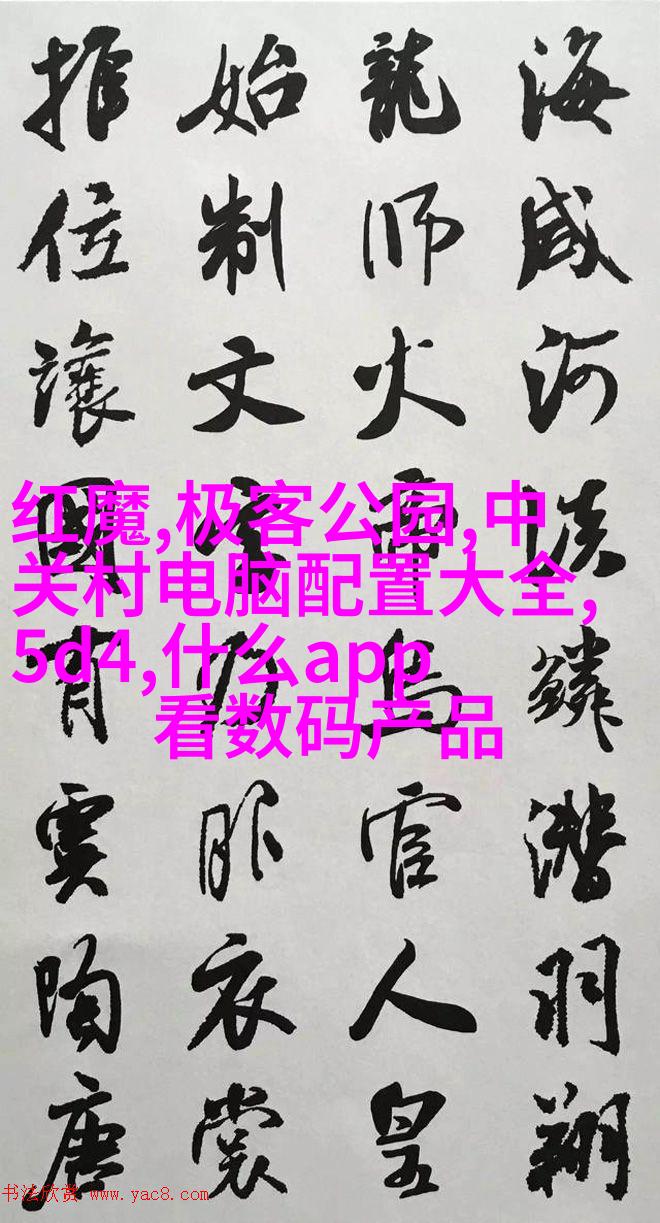 海咸河淡鱗潛羽翔
龍师火帝鳥官人皇
始制文字乃服衣裳
推位讓國有虞陶唐
红魔,极客公园,中
关村电脑配置大全,
5d4,什么app
看数码产品
书法欣赏 www.yac8.com